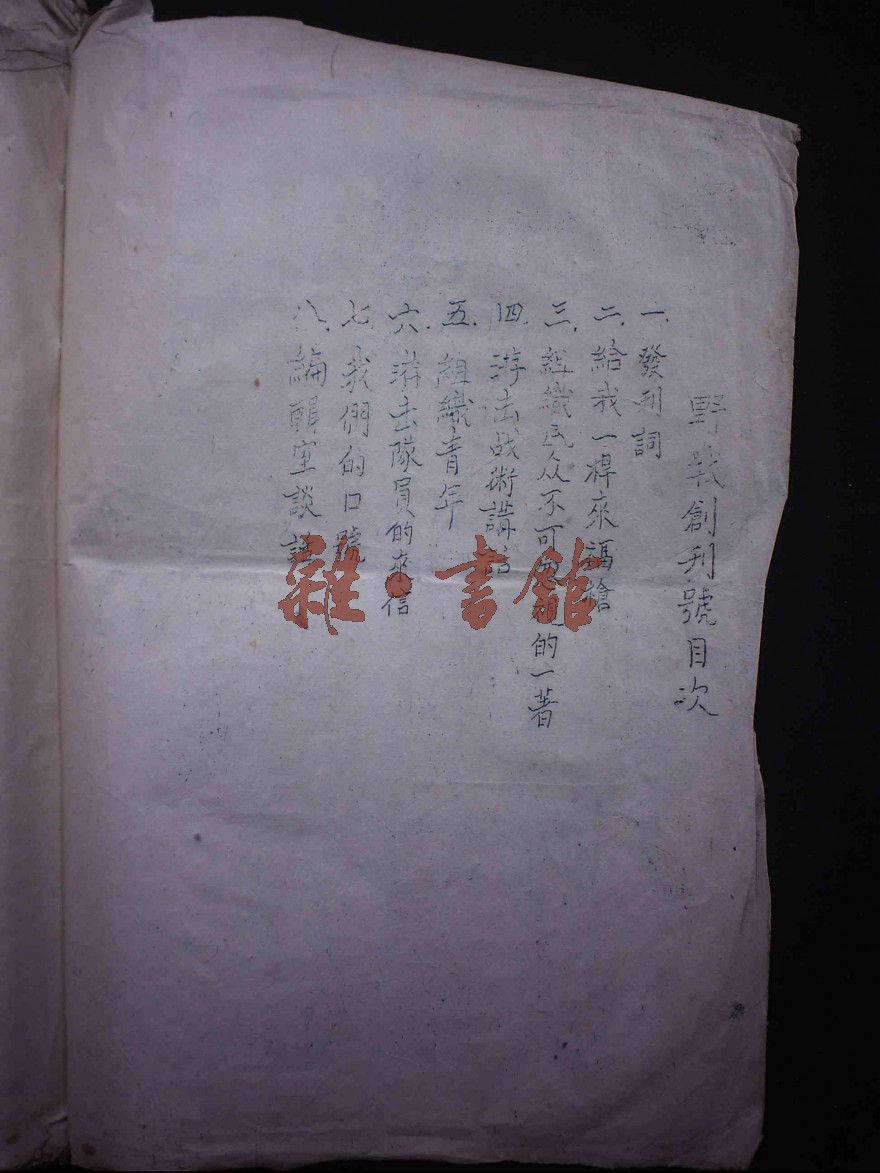 野戰創刊號目次
一.發刊詞
二.給我一桿來福槍
三.組織民众不可忽視的一著
四.游击战術講話
五.組織青年
六.游击隊員的來信
七.我們的口號
八.編輯室談話
雜·書館